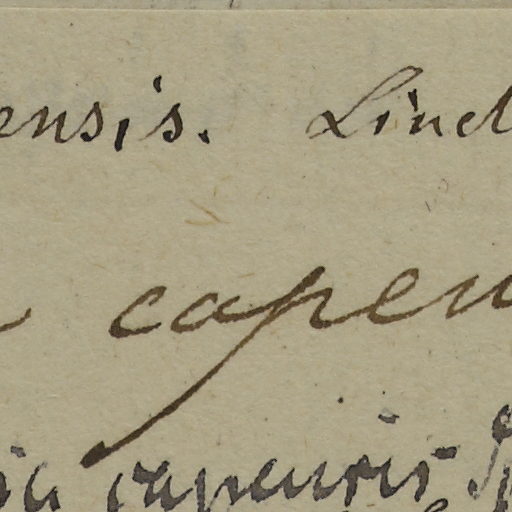 ensis. Lind
capen
ia capensis